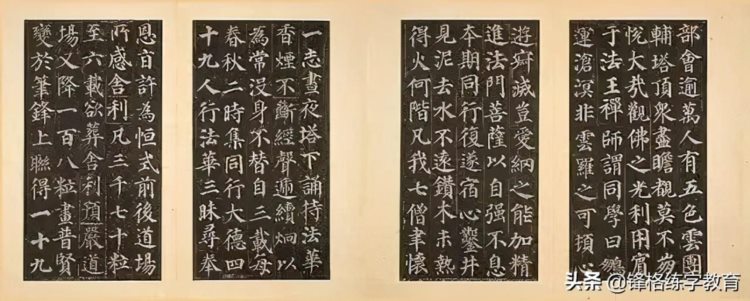 部會逾萬人有五色雲團
輔塔頂衆盡瞻覩莫不崩
悅大哉觀佛之光利用賓
于法王禪師謂同學曰鵬
運滄溟非雲羅之可頓心
遊寂滅豈愛納之能加精
進法門菩薩以自强不息
本期同行復遂宿心鑿井
見泥去水不遠鑽木未熱
得火何階凡我七僧聿懷
一志晝夜塔下誦持法華
香煙不斷經聲遞續炯以
為常没身不替自三載每
春秋二時集同行大德四
十九人行法華三昧尋奉
恩旨許為恒式前後道塲
所感舍利凡三千七十粒
至六載欲葬舍利預嚴道
塲又降一百八粒畫普賢
變於筆鋒上聯得一十九
头条 @锋格练字教育